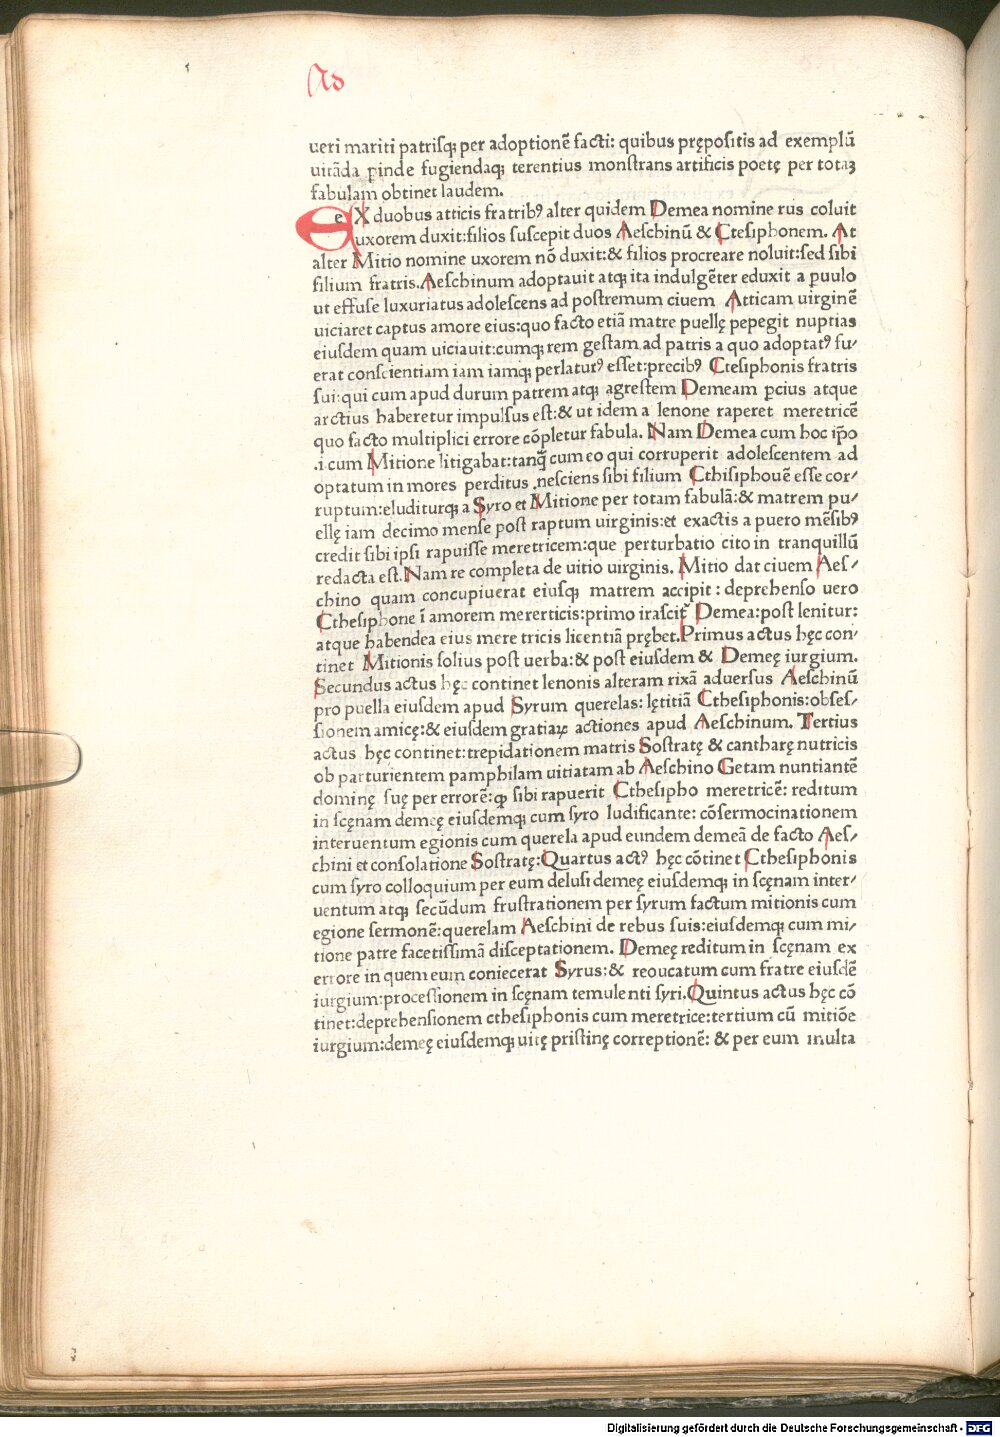 Ad
ueri mariti patrisq; per adoptionē facti: quibus prępositis ad exemplū
uitāda ꝓinde fugiendaq; terentius monstrans artificis poetę per totaꝫ
fabulam obtinet laudem.
EX duobus atticis fratribꝰ alter quidem Demea nomine rus coluit
uxorem duxit:filios suscepit duos Aeschinū & Ctesiphonem. At
alter Mitio nomine uxorem nō duxit:& filios procreare noluit:sed sibi
filium fratris.Aeschinum adoptauit atq; ita indulgēter eduxit a puulo
ut effuse luxuriatus adolescens ad postremum ciuem Atticam uirginē
uiciaret captus amore eius:quo facto etiā matre puellę pepegit nuptias
eiusdem quam uiciauit:cumq; rem gestam ad patris a quo adoptatꝰ fu/
erat conscientiam iam iamq; perlaturꝰ esset:precibꝰ Ctesiphonis fratris
sui:qui cum apud durum patrem atq; agrestem Demeam ꝑcius atque
arctius haberetur impulsus est:& ut idem a lenone raperet meretricē
quo facto multiplici errore cōpletur fabula. Nam Demea cum hoc ip̄o
.i cum Mitione litigabat:tanq̄ cum eo qui corruperit adolescentem ad
optatum in mores perditus .nesciens sibi filium Cthisiphouē esse cor/
ruptum:eluditurq; a Syro et Mitione per totam fabulā:& matrem pu/
ellę iam decimo mense post raptum uirginis:et exactis a puero mēsibꝰ
credit sibi ipsi rapuisse meretricem:que perturbatio cito in tranquillū
redacta est.Nam re completa de uitio uirginis. Mitio dat ciuem Aes/
chino quam concupiuerat eiusq; matrem accipit : deprehenso uero
Cthesiphone ī amorem mererticis:primo irascit̄ Demea:post lenitur:
atque habendea eius mere tricis licentiā prębet.Primus actus hęc con/
tinet Mitionis solius post uerba:& post eiusdem & Demeę iurgium.
Secundus actus hęc continet lenonis alteram rixā aduersus Aeschinū
pro puella eiusdem apud Syrum querelas: lętitiā Cthesiphonis:obses/
sionem amicę:& eiusdem gratiaꝝ actiones apud Aeschinum. Tertius
actus hęc continet:trepidationem matris Sostratę & cantharę nutricis
ob parturientem pamphilam uitiatam ab Aeschino Getam nuntiantē
dominę suę per errorē:ꝙ sibi rapuerit Cthesipho meretricē: reditum
in scęnam demeę eiusdemq; cum syro ludificante: cōsermocinationem
interuentum egionis cum querela apud eundem demeā de facto Aes/
chini et consolatione Sostratę:Quartus actꝰ hęc cōtinet Cthesiphonis
cum syro colloquium per eum delusi demeę eiusdemq; in scęnam inter/
uentum atq; secūdum frustrationem per syrum factum mitionis cum
egione sermonē:querelam Aeschini de rebus suis:eiusdemq; cum mi/
tione patre facetissimā disceptationem. Demeę reditum in scęnam ex
errore in quem eum coniecerat Syrus:& reoucatum cum fratre eiusdē
iurgium:processionem in scęnam temulenti syri.Quintus actus hęc cō
tinet:deprehensionem cthesiphonis cum meretrice:tertium cū mitiōe
iurgium:demeę eiusdemq; uitę pristinę correptionē: & per eum multa
Digitalisierung gefördert durch die Deutsche Forschungsgemeinschaft - DFG